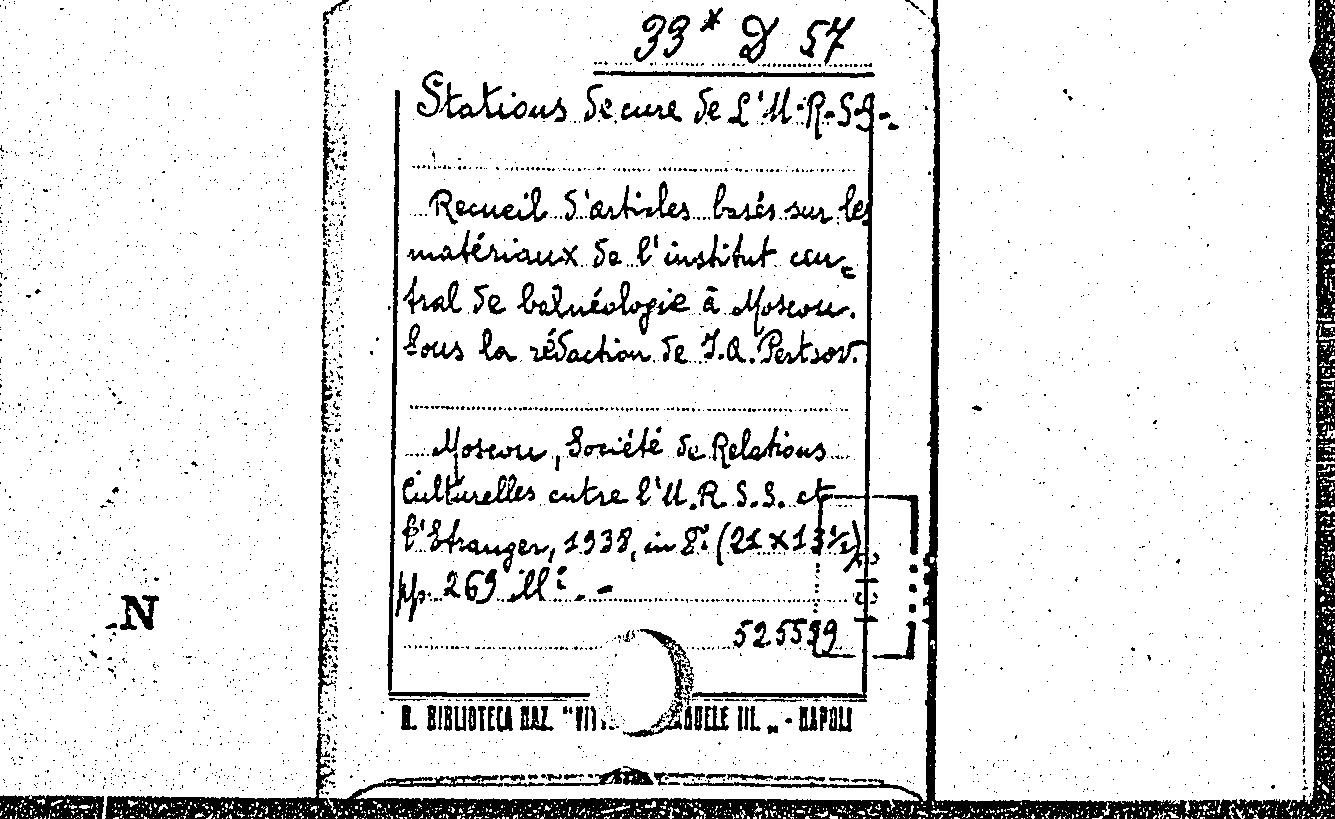 33* D 57
Stations de cure de L'U.R.S.S.
Recueil d'articles basés sur les
matériaux de l'institut cen=
tral de balnéologie à Moscou.
Sous la rédaction de I.A. Pertsov.
Moscou, Société de Relations
Culturelles entre l'U.R.S.S. et
l'Etranger, 1938, in 8.° (21 x 13½)
pp. 269 ill. -
N
R. BIBLIOTECA NAZ. "VIT EMANUELE III. „ - NAPOLI